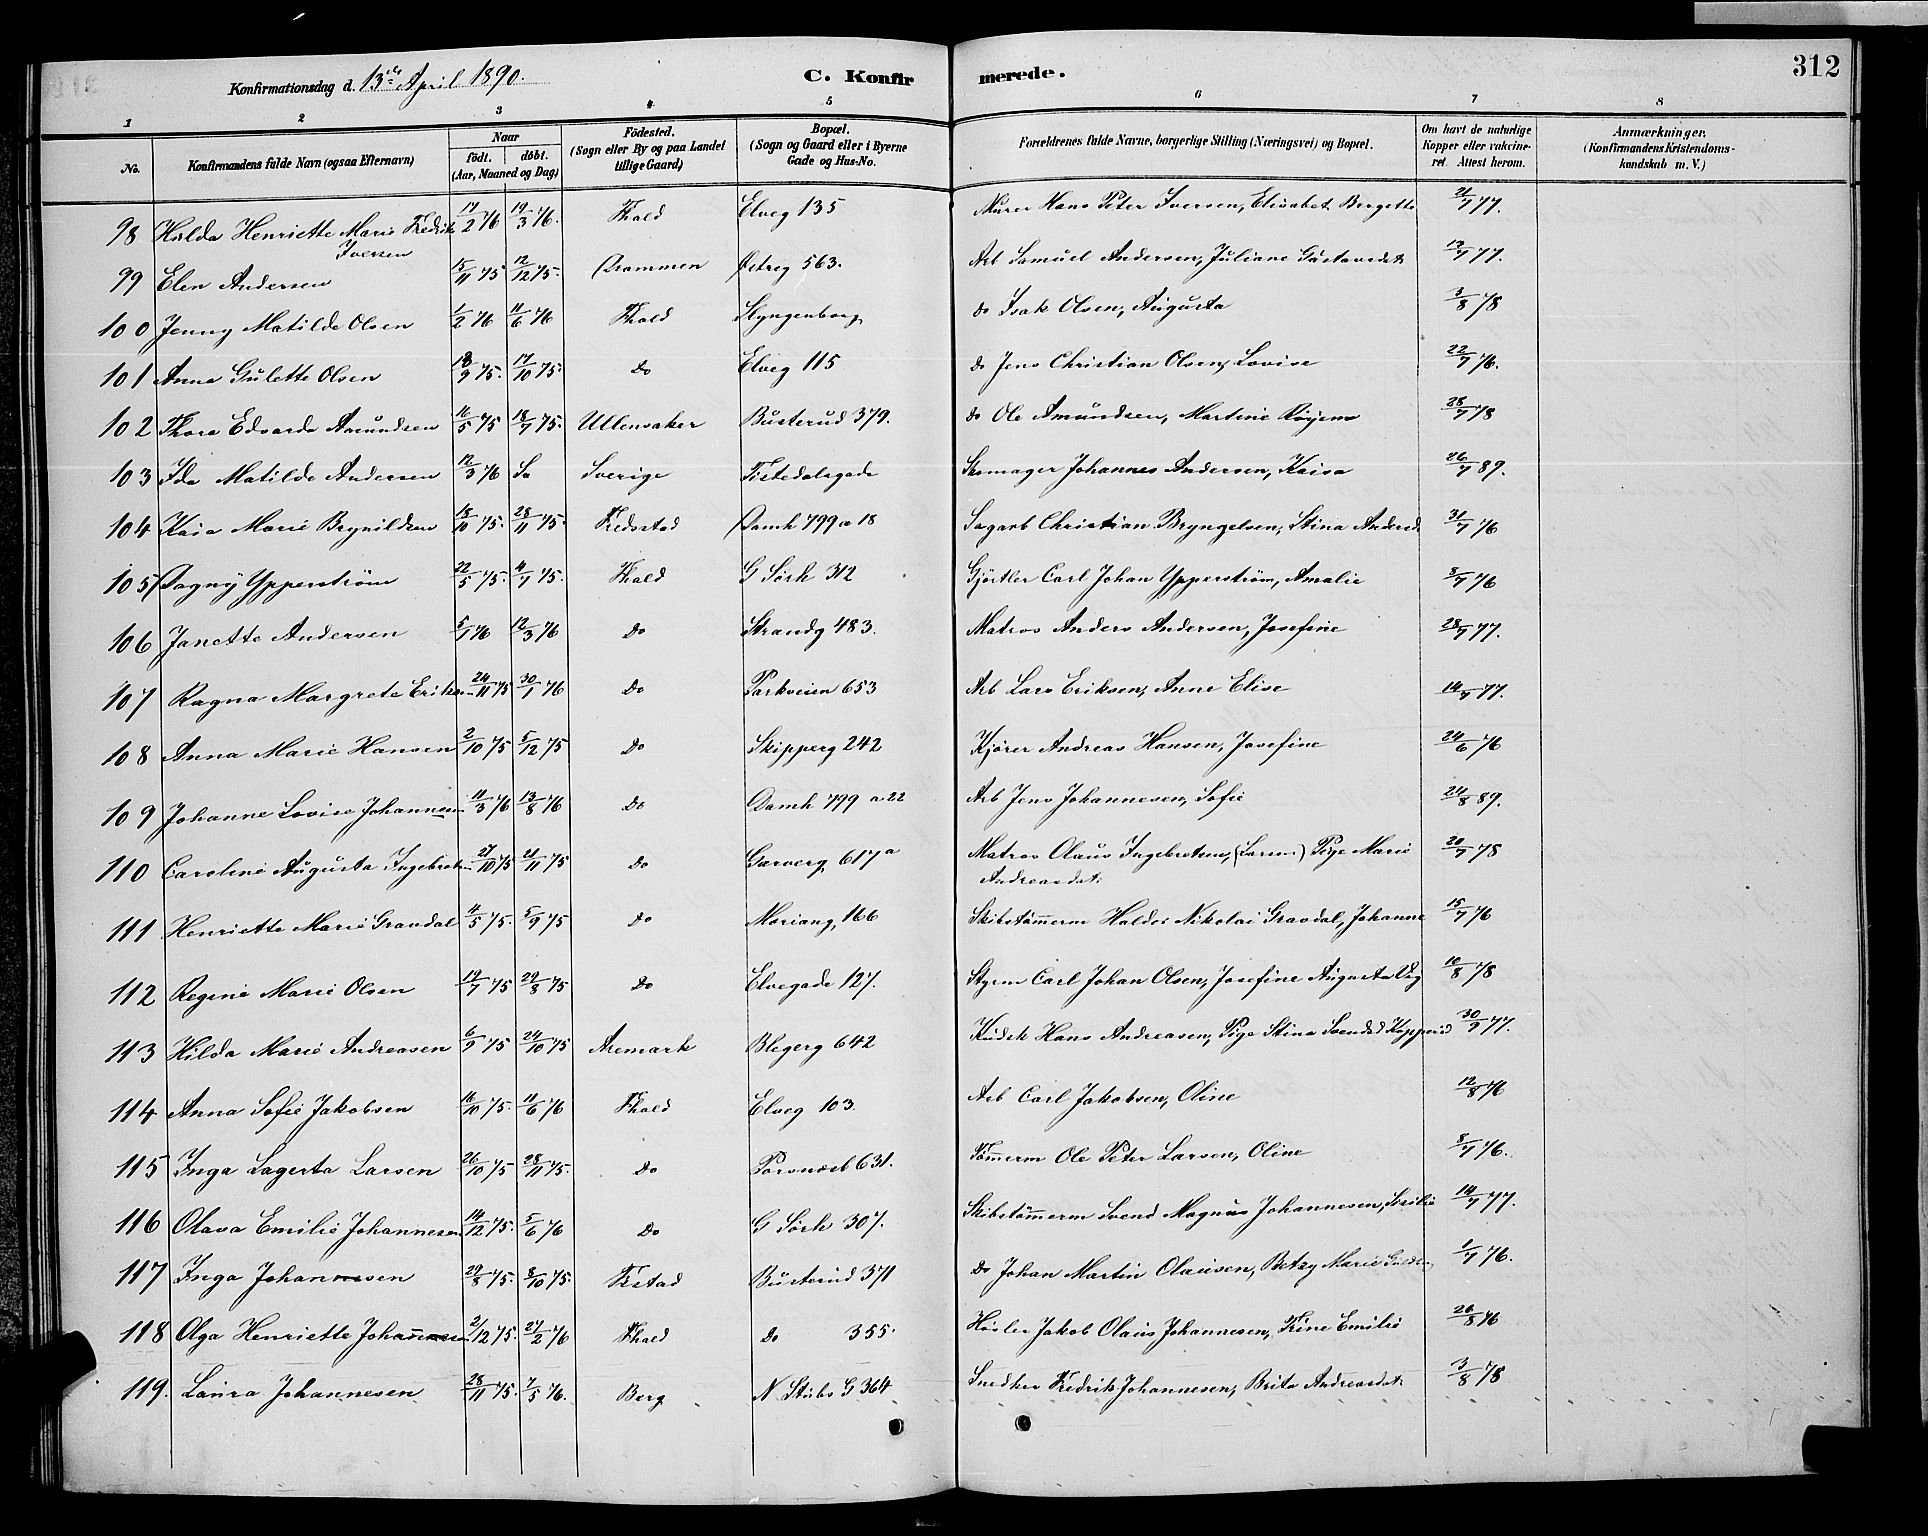 312
Konfirmationsdag d. 13de April 1890. C. Konfirmerede.
1 2 3 4 5 6 7 8
No. Konfirmandens fulde Navn (ogsaa Efternavn) Naar födt. döbt. (Aar, Maaned og Dag) Födested. (Sogn eller By og paa Landet tillige Gaard) Bopæl. (Sogn og Gaard eller i Byerne Gade og Hus-No. Forældrenes fulde Navne, borgerlige Stilling (Næringsvei) og Bopæl. Om havt de naturlige Kopper eller vaccineret. Attest herom. Anmærkninger. (Konfirmandens Kristendomskundskab m. V.)
98 Hilda Henriette Marie Fredrik Iversen 17/2 76 19/3 76. Fhald Elveg 135 Murer Hans Peter Iversen, Elisabet Bergette 21/7 77.
99 Elen Andersen 15/11 75 12/12 75. Drammen Østreg 563. Arb Samuel Andersen, Juliane Gustavsdat 13/7 77.
100 Jenny Matilde Olsen 1/2 76 11/6 76 Fhald Klyngenborg Do Isak Olsen, Augusta 3/8 78
101 Anna Gulette Olsen 18/9 75. 17/10 75. Do Elveg 115 Do Jens Christian Olsen, Lovise 22/7 76.
102 Thora Edvarda Amundsen 16/5 75 18/7 75. Ullensaker Busterud 379. Do Ole Amundsen, Martine 28/7 78
103 Ida Matilde Andersen 12/3 76 Sverige Tistedalsgade Skomager Johannes Andersen, Kaisa 26/7 89.
104 Kaia Marie Brynildsen 18/10 75. 28/11 75. Fredsstad Damh 799 a 18 Sagarb Christian Bryngelsen, Stina Andersd 31/7 76
105 Dagny Ypperström 22/5 75. 4/7 75. Fhald G Sörh 312 Gjörtler Carl Johan Ypperström, Amalie 8/7 76
106 Janette Andersen 5/1 76 12/3 76 Do Strandg 483. Matros Anders Andersen, Josefine 28/7 77.
107 Ragna Margrete Eriksen 24/11 75 30/1 76 Do Parkveien 653 Arb Lars Eriksen, Anne Elise 14/7 77.
108 Anna Marie Hansen 2/10 75 5/12 75 Do Skipperg 242 Kjører Andreas Hansen, Josefine 24/6 76
109 Johanne Lovise Johannesen 11/3 76 13/8 76 Do Damh 799 a 22 Arb Jens Johannesen, Sofie 24/8 89.
110 Caroline Augusta Ingebretsen 27/10 75 21/11 75 Do Garverg, 617 a Matros Olaus Ingebretsen, (Larsen) Pige Marie 20/7 78
Andreasdat.
111 Henriette Marie Gravdal 4/5 75. 5/9 75 Do Moriang, 166 Skibstømmerm Haldor Nikolai Gravdal, Johanne 15/7 76
112 Regine Marie Olsen 19/7 75 29/8 75 Do Elvegade 127. Styrm Carl Johan Olsen, Josefine Augusta 10/8 78
113 Hilda Marie Andreasen 6/9 75 24/10 75 Aremark Blegerg 642 Kudsk Hans Andreasen, Pige Stina Svendsd 30/9 77.
114 Anna Sofie Jakobsen 16/10 75. 11/6 76 Fhald Elveg 103. Arb Carl Jakobsen, Oline 12/8 76
115 Inga Lagerta Larsen 26/10 75 28/11 75. Do 631. Tømerm Ole Peter Larsen, Oline 8/7 76.
116 Olava Emilie Johannesen 14/12 75. 5/6 76 Do G Sörh 307. Skibstømmerm Svend Magnus Johannesen, 14/7 77.
117 Inga Johannesen 29/8 75. 8/10 75. Fkstad Busterud 371 Do Johan Martin Olausen, Betzy Marie 1/7 76.
118 Olga Henriette Johannesen 2/12 75. 27/2 76 Fhald Do 355. Høsler Jakob Olaus Johannesen, Trine Emilie 26/8 76
119. Laura Johannesen 28/11 75. 7/5 76. Berg N. Stubs G 364 Snedker Fredrik Johannesen, Brita Andreasdat. 3/8 78